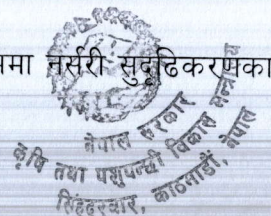 मा नर्सरी सुदृढिकरणका
नेपाल सरकार
कृषि तथा पशुपन्छी विकास मन्त्रालय
सिंहदरबार, काठमाडौं, नेपाल